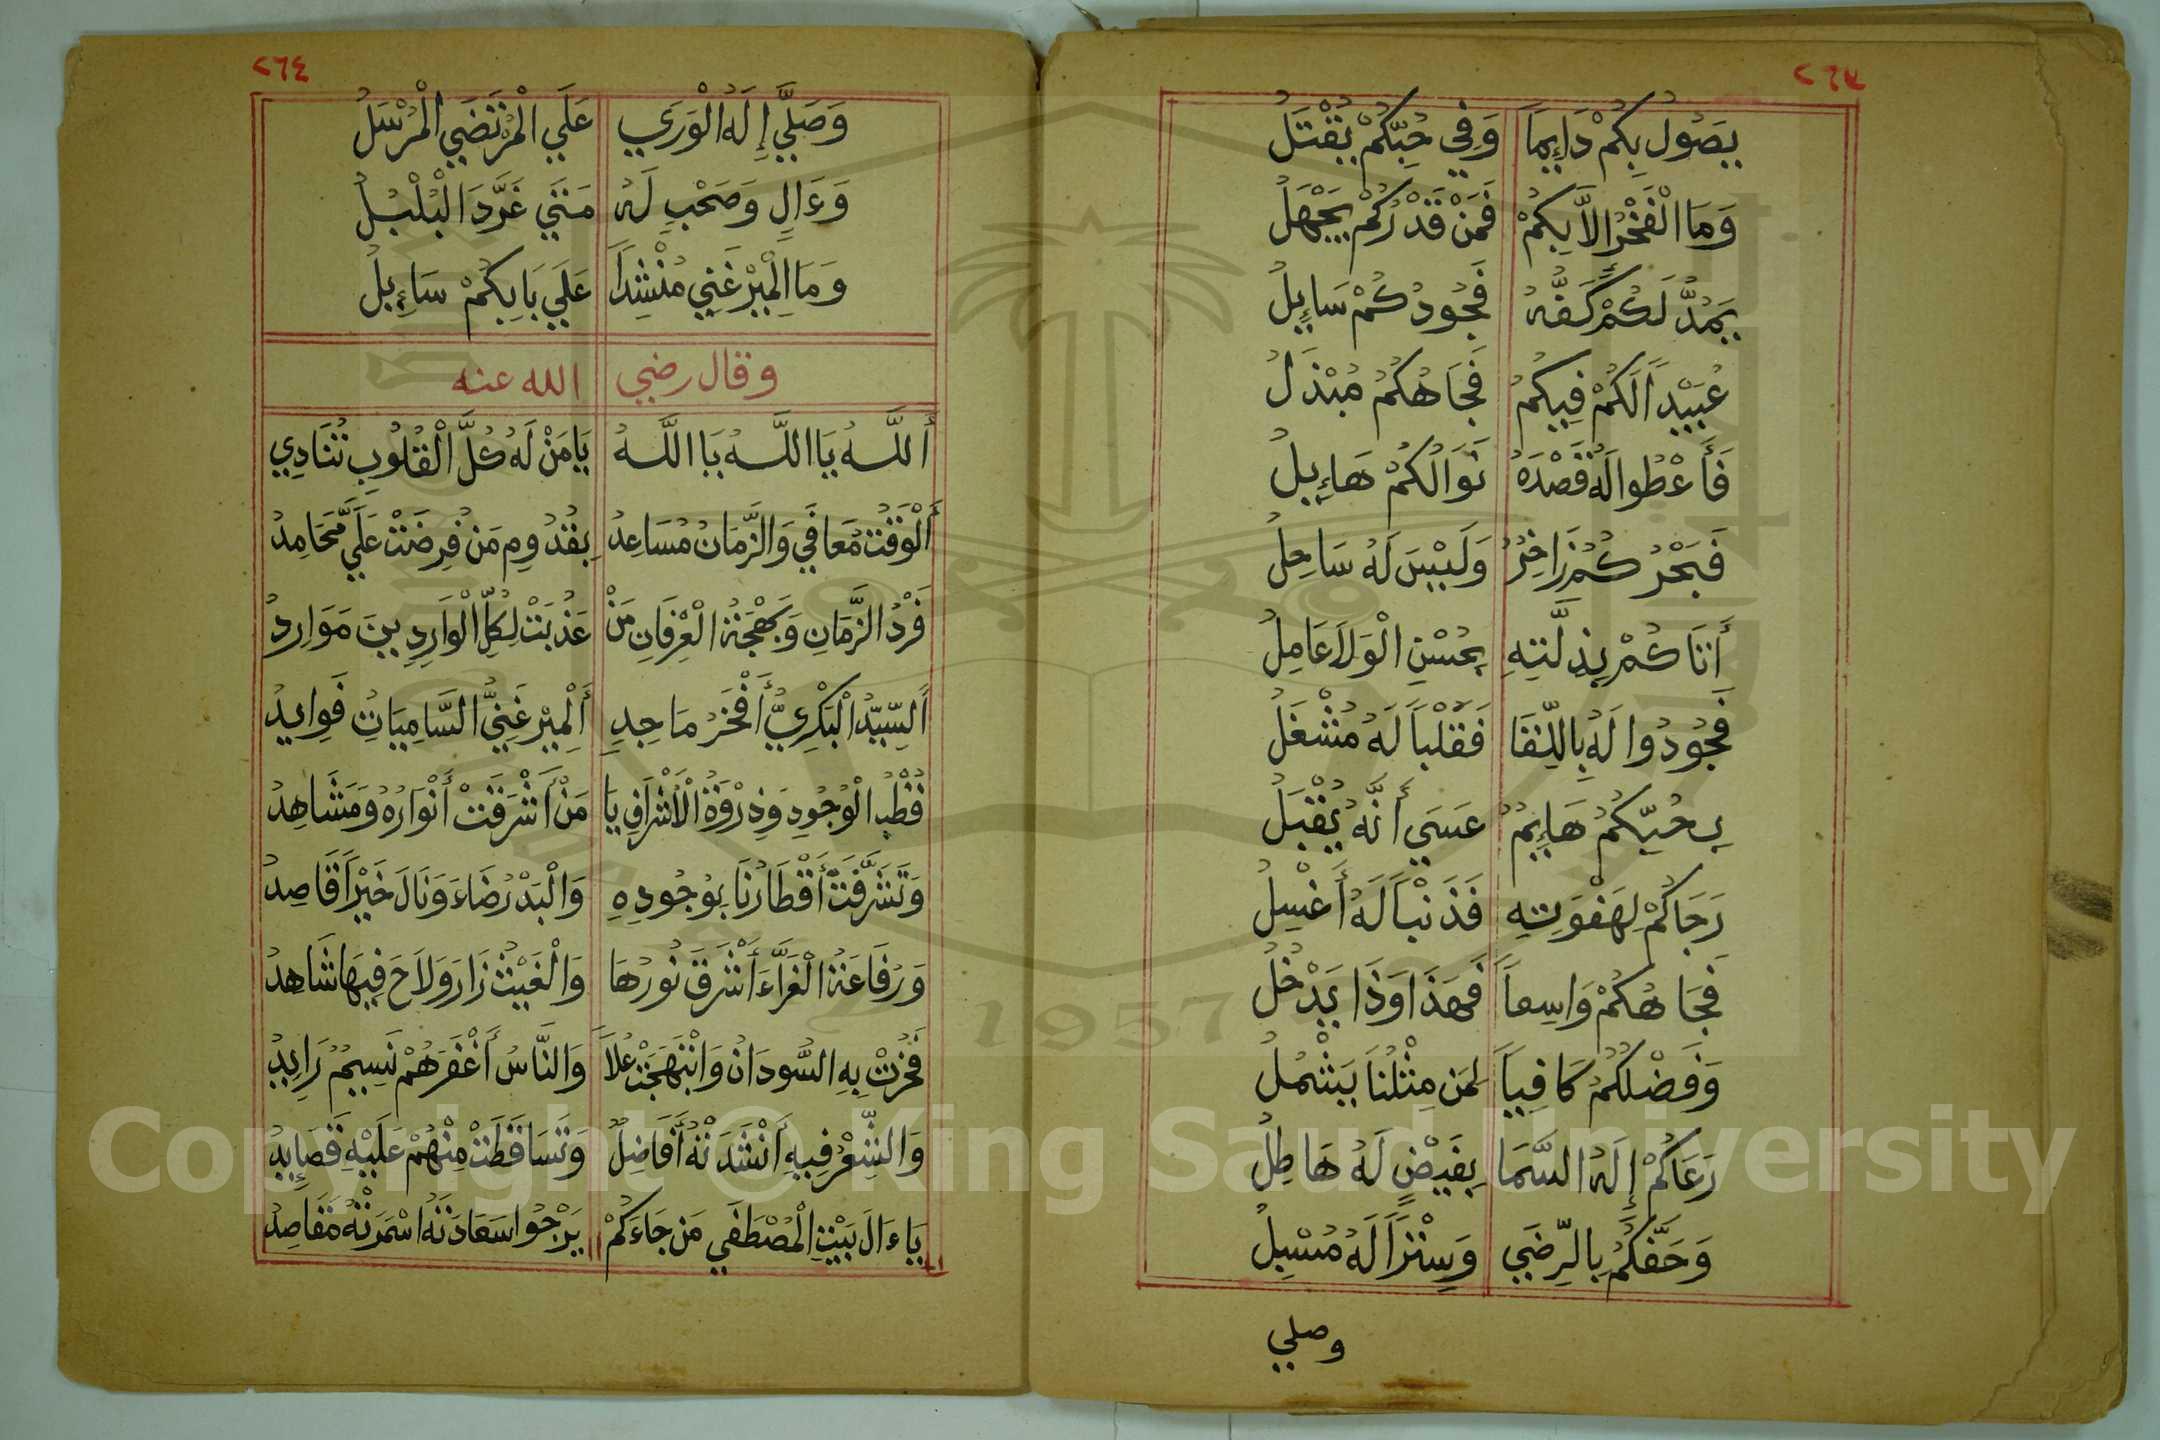 ٢٦٣
يَصُولُ بِكُمْ دَايِمًا وَفِي حُبِّكُمْ يُقْتَلُ
وَمَا الْفَخْرُ الَّا بِكُمْ فَمَنْ قَدْرَكُمْ يَجْهَلُ
يَمُدُّ لَكُمْ كَفَّهُ فَجُودُكُمْ سَايِلُ
عُبَيْدًا لَكُمْ فِيكُمُ فَجَاهُكُمُ مُبْذَلُ
فَأَعْطُوا لَهُ قَصْدَهُ نَوَالُكُمُ هَايِلُ
فَبَحْرُكُمُ زَاخِرُ وَلَيْسَ لَهُ سَاحِلُ
أَتَاكُمْ بِذِلَّتِهِ بِحُسْنِ الْوَلَا عَامِلُ
فَجُودُوا لَهُ بِاللِّقَا فَقَلْبًا لَهُ مُشْغَلُ
بِحُبِّكُمُ هَايِمُ عَسَي أَنَّهُ يُقْبَلُ
رَجَاكُمْ لِهَفْوَتِهِ فَذَنْبًا لَهُ أَغْسِلُ
فَجَاهُكُمْ وَاسِعًا فَهَذَا وَذَا يَدْخُلُ
وَفَضْلُكُمُ كَافِيًا لِمَنْ مِثْلُنَا يَشْمُلُ
رَعَاكُمْ إِلَهُ السَّمَا بِفَيْضٍ لَهُ هَاطِلُ
وَحَفَّكُمُ بِالرِّضَي وَسِتْرًا لَهُ مُسْبِلُ
وصلي
٢٦٤
وَصَلَّي إِلَهُ الْوَرَي عَلَي الْمُرْتَضَي الْمُرْسَلُ
وَءَالٍ وَصَحْبٍ لَهُ مَتَي غَرَّدَ الْبُلْبُلُ
وَمَا الْمِيرْغَنِي مُنْشِدًا عَلَي بَابِكُمْ سَاءِيلُ
وقال رضي الله عنه
أَللَّهُ يَا اللَّهُ يَا اللَّهُ يَا مَنْ لَهُ كُلَّ الْقُلُوبِ تُنَادِي
أَلْوَقْتُ مُعَافَي وَالزَّمَانُ مُسَاعِدُ بِقُدُومِ مَنْ فُرِضَتْ عَلَيَّ مَحَامِدُ
فَرْدُ الزَّمَانِ وَبَهْجَةُ الْعِرْفَانِ مَنْ عَذُبَتْ لِكُلِّ الْوَارِدِينَ مَوَارِدُ
أَلسَّيِّدُ الْبَكْرِيُّ أَفْخَرُ مَاجِدٍ أَلْمِيرْغَنِيُّ السَّامِيَاتُ فَوَايِدُ
قُطْبُ الْوُجُودِ وَذِرْوَةُ الْأَشْرَافِ يَا مَنْ أَشْرَقَتْ أَنْوَارُهُ وَمَشَاهِدُ
وَتَشَرَّفَتْ أَقْطَارُنَا بِوُجُودِهِ وَالْبَدْرُ ضَاءَ وَنَالَ خَيْرًا قَاصِدُ
وَرُفَاعَةُ الْغَرَّاءِ أَشْرَقَ نُورُهَا وَالْغَيْثُ زَارَ وَلَاحَ فِيهَا شَاهِدُ
فَخُرَتْ بِهِ السُّودَانُ وَابْتَهَجَتْ عُلًا وَالنَّاسُ أَغْفَرَهُمْ نَسِيمُ رَايِدُ
وَالشِّعْرُ فِيهِ أَنْشَدَتْهُ أَفَاضِلٌ وَتَسَاقَطَتْ مِنْهُمْ عَلَيْهِ قَصَايِدُ
يَاءَالَ بَيْتِ الْمُصْطَفَي مَنْ جَاءَكُمْ يَرْجُوا سَعَادَتَهُ اسْمَرَتْهُ مَقَاصِدُ
Copyright © King Saud University
1957